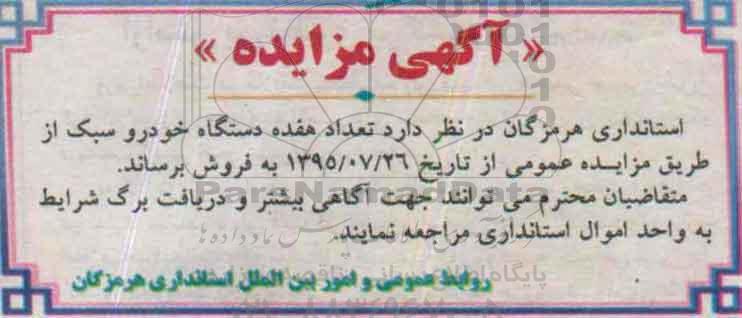 « آگهی مزایده »
استانداری هرمزگان در نظر دارد تعداد هفده دستگاه خودرو سبک از
طریق مزایـده عمومی از تاریخ ۱۳۹۵/۰۷/۲۶ به فروش برساند.
متقاضیان محترم می توانند جهت آگاهی بیشتر و دریافت برگ شرایط
به واحد اموال استانداری مراجعه نمایند.
روابط عمومی و امور بین الملل استانداری هرمزگان
ParsNamadData